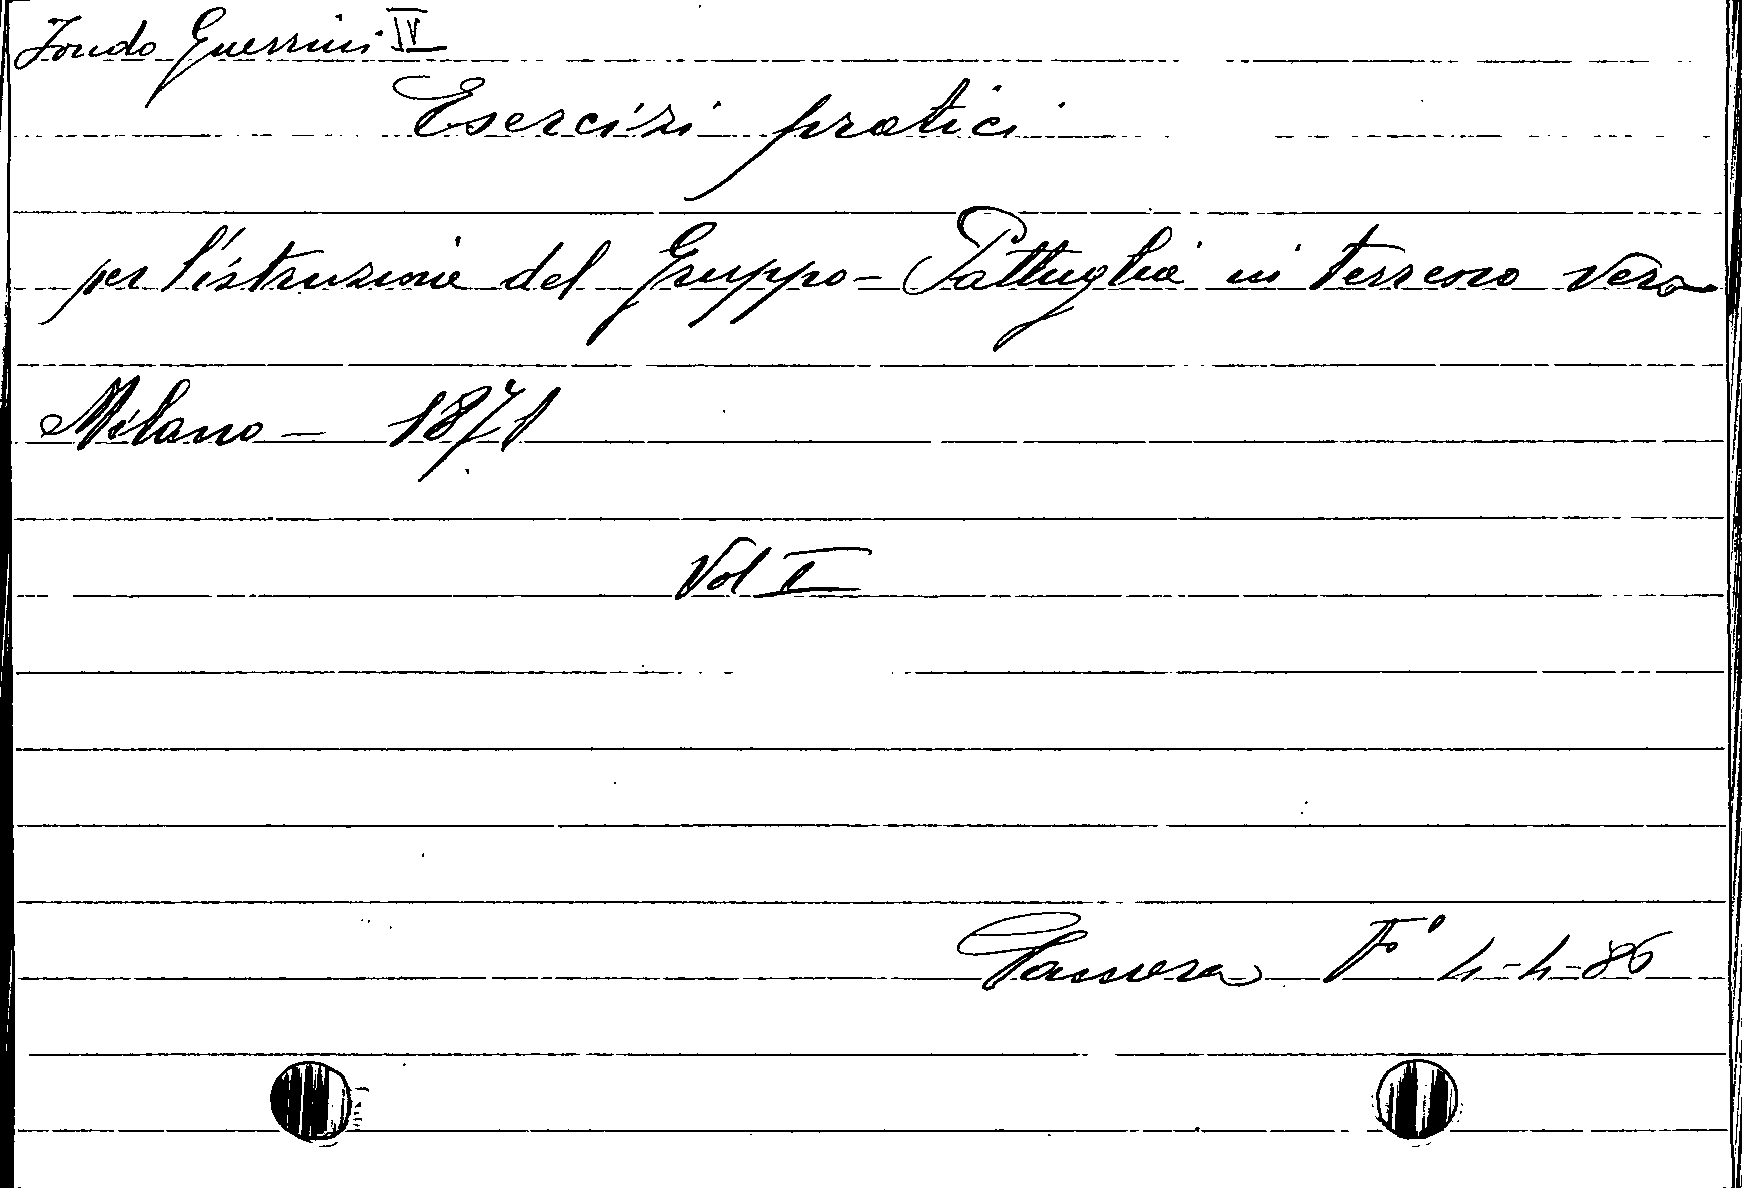 Fondo Guerrini IV
Esercizi pratici
per l'istruzione del Gruppo - Pattuglia in terreno vero
Milano - 1871
Vol I
F° 4-4-86